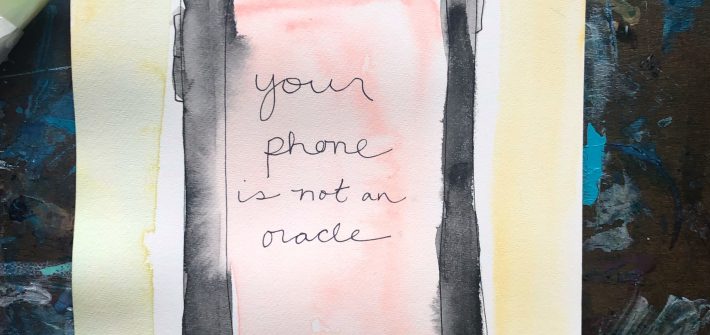 your
phone
is not an
oracle